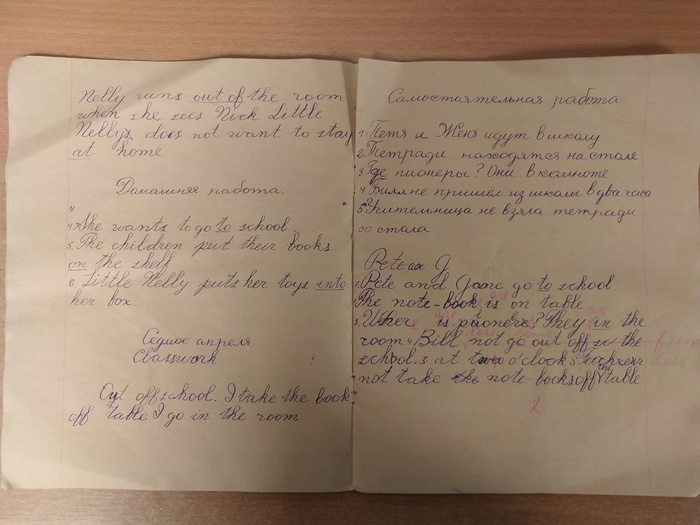 Nelly runs out of the room
when she sees Nick Little
Nellys does not want to stay
at home
Домашняя работа.
4. She wants to go to school
5. The children put their books
on the shelf
6. Little Nelly puts her toys into
her box
Седмое апреля
Classwork
Out off school. I take the book
off table I go in the room
Самостоятельная работа
1. Петя и Женя идут в школу
2. Тетради находятся на столе
3. Где пионеры? Они в комноте
4. Билл не пришел из школи в два часа
5. Учительница не взяла тетради
со стола
Pete
1. Pete and Gane go to school
The note-book is on table
3. Where is pioners? They in the
room 4. Bill not go out off the
school at two o'clock 5.
not take the note-books off the table
2